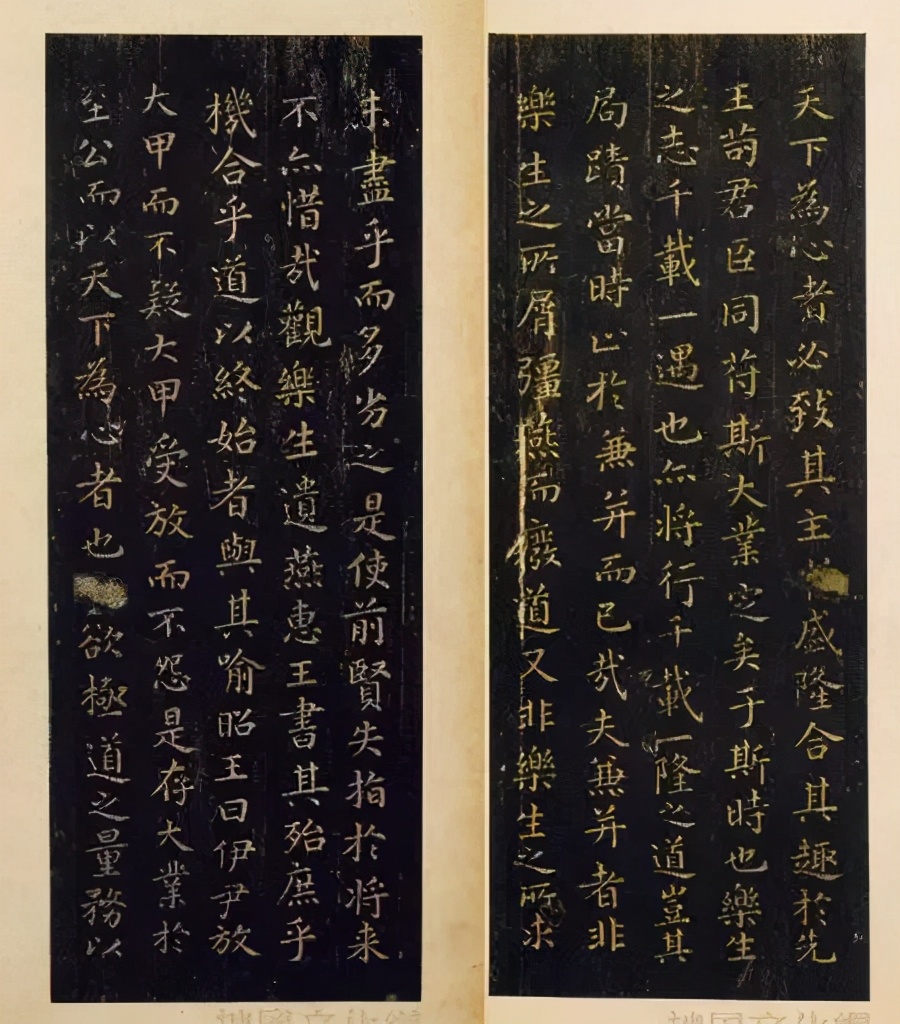 天下為心者必致其主盛隆合其趣於先
王苟君臣同符斯大業定矣于斯時也樂生
之志千載一遇也亦將行千載一隆之道豈其
局蹟當時止於兼并而已哉夫兼并者非
樂生之所屑彊燕而廢道又非樂生之所求
未盡乎而多劣之是使前賢失指於將来
不亦惜哉觀樂生遺燕惠王書其殆庶乎
機合乎道以終始者與其喻昭王曰伊尹放
大甲而不疑大甲受放而不怨是存大業於
至公而以天下為心者也欲極道之量務以